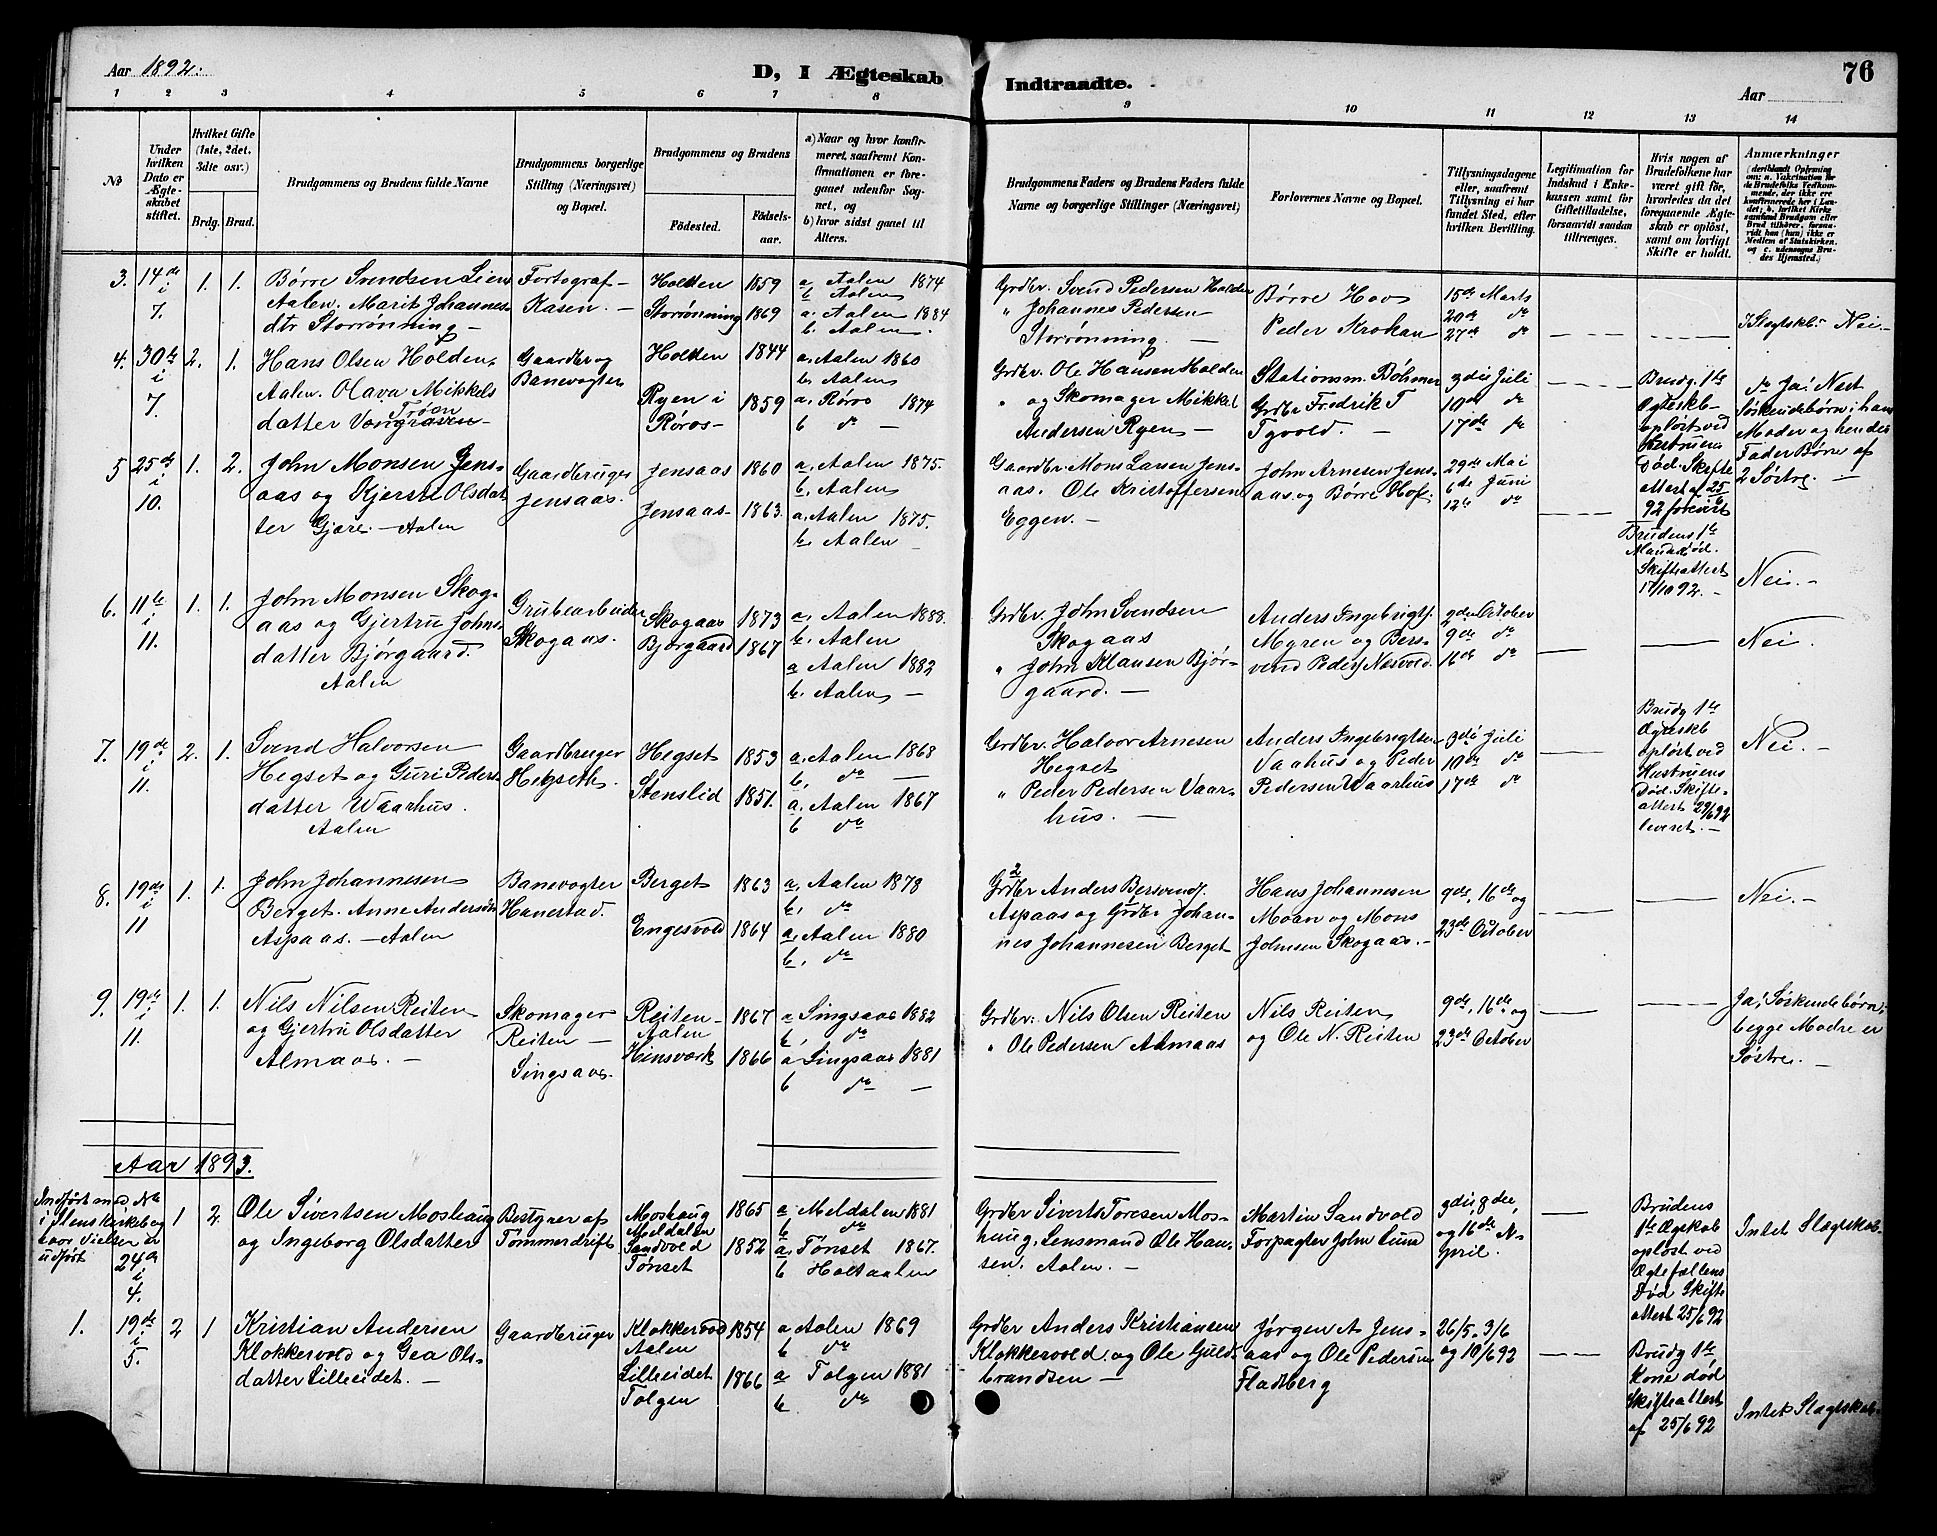 Aar 1892.
D, I Ægteskab Indtraadte.
76
Aar
1 2 3 4 5 6 7 8 9 10 11 12 13 14
No
Under hvilken Dato er Ægteskabet stiftet.
Hvilket Gifte (1ste, 2det, 3die osv.)
Brdg. Brud.
Brudgommens og Brudens fulde Navne
Brudgommens borgerlige Stilling (Næringsvei) og Bopæl.
Brudgommens og Brudens
Födested. Födsels-aar.
a) Naar og hvor konfirmeret, saafremt Konfirmationen er foregaaet udenfor Sognet, og b) hvor sidst gaaet til Alters.
Brudgommens Faders og Brudens Faders fulde Navne og borgerlige Stillinger (Næringsvei)
Forlovernes Navne og Bopæl.
Tillysningsdagene eller, saafremt Tillysning ei har fundet Sted, efter hvilken Bevilling.
Legitimation for Indskud i Enkekassen samt for Giftetilladelse, forsaavidt saadan tiltrænges.
Hvis nogen af Brudefolkene har været gift för, hvorledes da det foregaaende Ægteskab er oplöst, samt om lovligt Skifte er holdt.
Anmærkninger
3. 14de i 7. 1. 1.
Børre Svendsen Lien
Aalen. Marit Johannes-
dtr Storrønning —
Fortograf —
Rasen. —
Holden 1859
Storrønning 1869
a. Aalen 1874
b. Aalen
a. Aalen 1884
b. Aalen.
Grdbr. Svend Pedersen Holden
" Johannes Pedersen
Storrønning. —
Børre Hov
Peder Mrokan
15de Marts
20de do
27de do
Slagtskb. Nei. —
4. 30te i 7. 2. 1.
Hans Olsen Holden
Aalen. Olava Mikkels
datter Vongraven Trøen
Gaardbr og
Banevogter
Holden 1844
Ryen i 1859
Røros
a. Aalen 1860
b. Aalen
a. Røros 1874
b do —
Grdbr. Ole Hansen Holden
" og Skomager Mikkel
Andersen Ryen —
Stationsm. Böhmer
Grdbr Fredrik T
Tyvold. —
3die Juli
10de do
17de do
Brudg. 1te
Ægteskb
opløst ved
Hustruens
Død. Skifte
attest af 25/6
92 forevist
do Ja; Næst
Søskendebørn; hans
Moder og hendes
Fader Børn af
2 Søstre. —
5 25de i 10. 1. 2.
John Monsen Jens-
aas og Kjersti Olsdat
ter Gjære. — Aalen
Gaardbruger
Jensaas.
Jensaas 1860
Jensaas 1863.
a. Aalen 1875.
b. Aalen
a. Aalen 1875.
b. Aalen
Gaardbr. Mons Larsen Jens-
aas. Ole Kristoffersen
Eggen. —
John Arnesen Jens-
aas og Børre Hof.
29de Mai
6te Juni
12te do
Brudens 1te
Mand død.
Skifteattest
17/10 92. —
Nei. —
6. 11te i 11. 1. 1.
John Monsen Skog-
aas og Gjertru Johns
datter Bjørgaard.
Aalen
Grubearbeider
Skogaas.
Skogaas 1873
Bjørgaard 1867
a. Aalen 1888.
b. Aalen
a Aalen 1882
b. Aalen —
Grdbr. John Svendsen
Skogaas
" John Klausen Bjør-
gaard. —
Anders Ingebrigts.
Myren og Bers-
vend Peders Nesvold.
2den October
9de do
16de do
Nei.
7. 19de i 11. 2. 1.
Svend Halvorsen
Hegset og Guri Peders
datter Waarhus.
Aalen
Gaardbruger
Hegseth.
Hegset 1853
Stenslid 1851.
a. Aalen 1868
b. do —
a. Aalen 1867
b do
Grdbr. Halvor Arnesen
Hegset
" Peder Pedersen Vaar-
hus. —
Anders Ingebrigtsen
Vaahus og Peder
Pedersen Waarhus
3die Juli
10de do
17de do
Brudg 1te
Ægteskb
opløst ved
Hustruens
Død. Skifte-
attest 29/6 92
leveret. —
Nei. —
8. 19de i 11 1. 1.
John Johannesen
Berget. Anne Andersdtr
Aspaas. — Aalen
Banevogter
Hanestad.
Berget 1863
Engesvold 1864
a. Aalen 1878
b. do
a. Aalen 1880
b. do
Grdbr Anders Bersvends.
Aspaas og Grdbr Johan-
nes Johannesen Berget
Hans Johannesen
Moan og Mons
Johnsen Skogaas. —
9de, 16de og
23de October
Nei. —
9. 19de i 11. 1. 1.
Nils Nilsen Reiten
og Gjertru Olsdatter
Almaas. —
Skomager
Reiten —
Singsaas.
Reiten 1867
Aalen
Kinsværk 1866
a Singsaas 1882
b do
a Singsaas 1881
b do —
Grdbr. Nils Olsen Reiten
" Ole Pedersen Almaas
Nils Reiten
og Ole N. Reiten
9de, 16de og
23de October
Ja; Søskendebørn;
begge Mødre er
Søstre. —
Aar 1893.
Indført med No
udført
24de i 4. 1 2.
Ole Sivertsen Moshaug
og Ingeborg Olsdatter
Bestyrer af
Tømmerdrift
Moshaug 1865
Meldalen
Sandvold 1852
Tønset
a. Meldalen 1881
b do
a. Tønset 1867.
b Holtaalen
Grdbr Siverts Toresen Mos-
haug. Lensmand Ole Han-
sen. Aalen. —
Martin Sandvold
Forpagter John Lund
3die, 9de,
og 16de A-
pril.
Brudens
1te Ægskab
opløst ved
Ægtefællens
Død Skifte
attest 25/6 92
Intet Slagtskab.
1. 19de i 5. 2 1
Kristian Andersen
Klokkervold og Gea Ols-
datter Lilleeidet. —
Gaardbruger
Klokkervold 1854
Aalen
Lilleeidet 1866
Tolgen
a Aalen 1869
b do
a Tolgen 1881
b do
Grdbr Anders Kristiansen
Klokkervold og Ole Guld-
brandsen —
Jørgen A Jens-
aas og Ole Pedersen
Fladberg
26/5. 3/6
og 10/6 92
Brudg 1te
Kone død
Skifteattest
af 25/6 92
Intet Slagtskab.